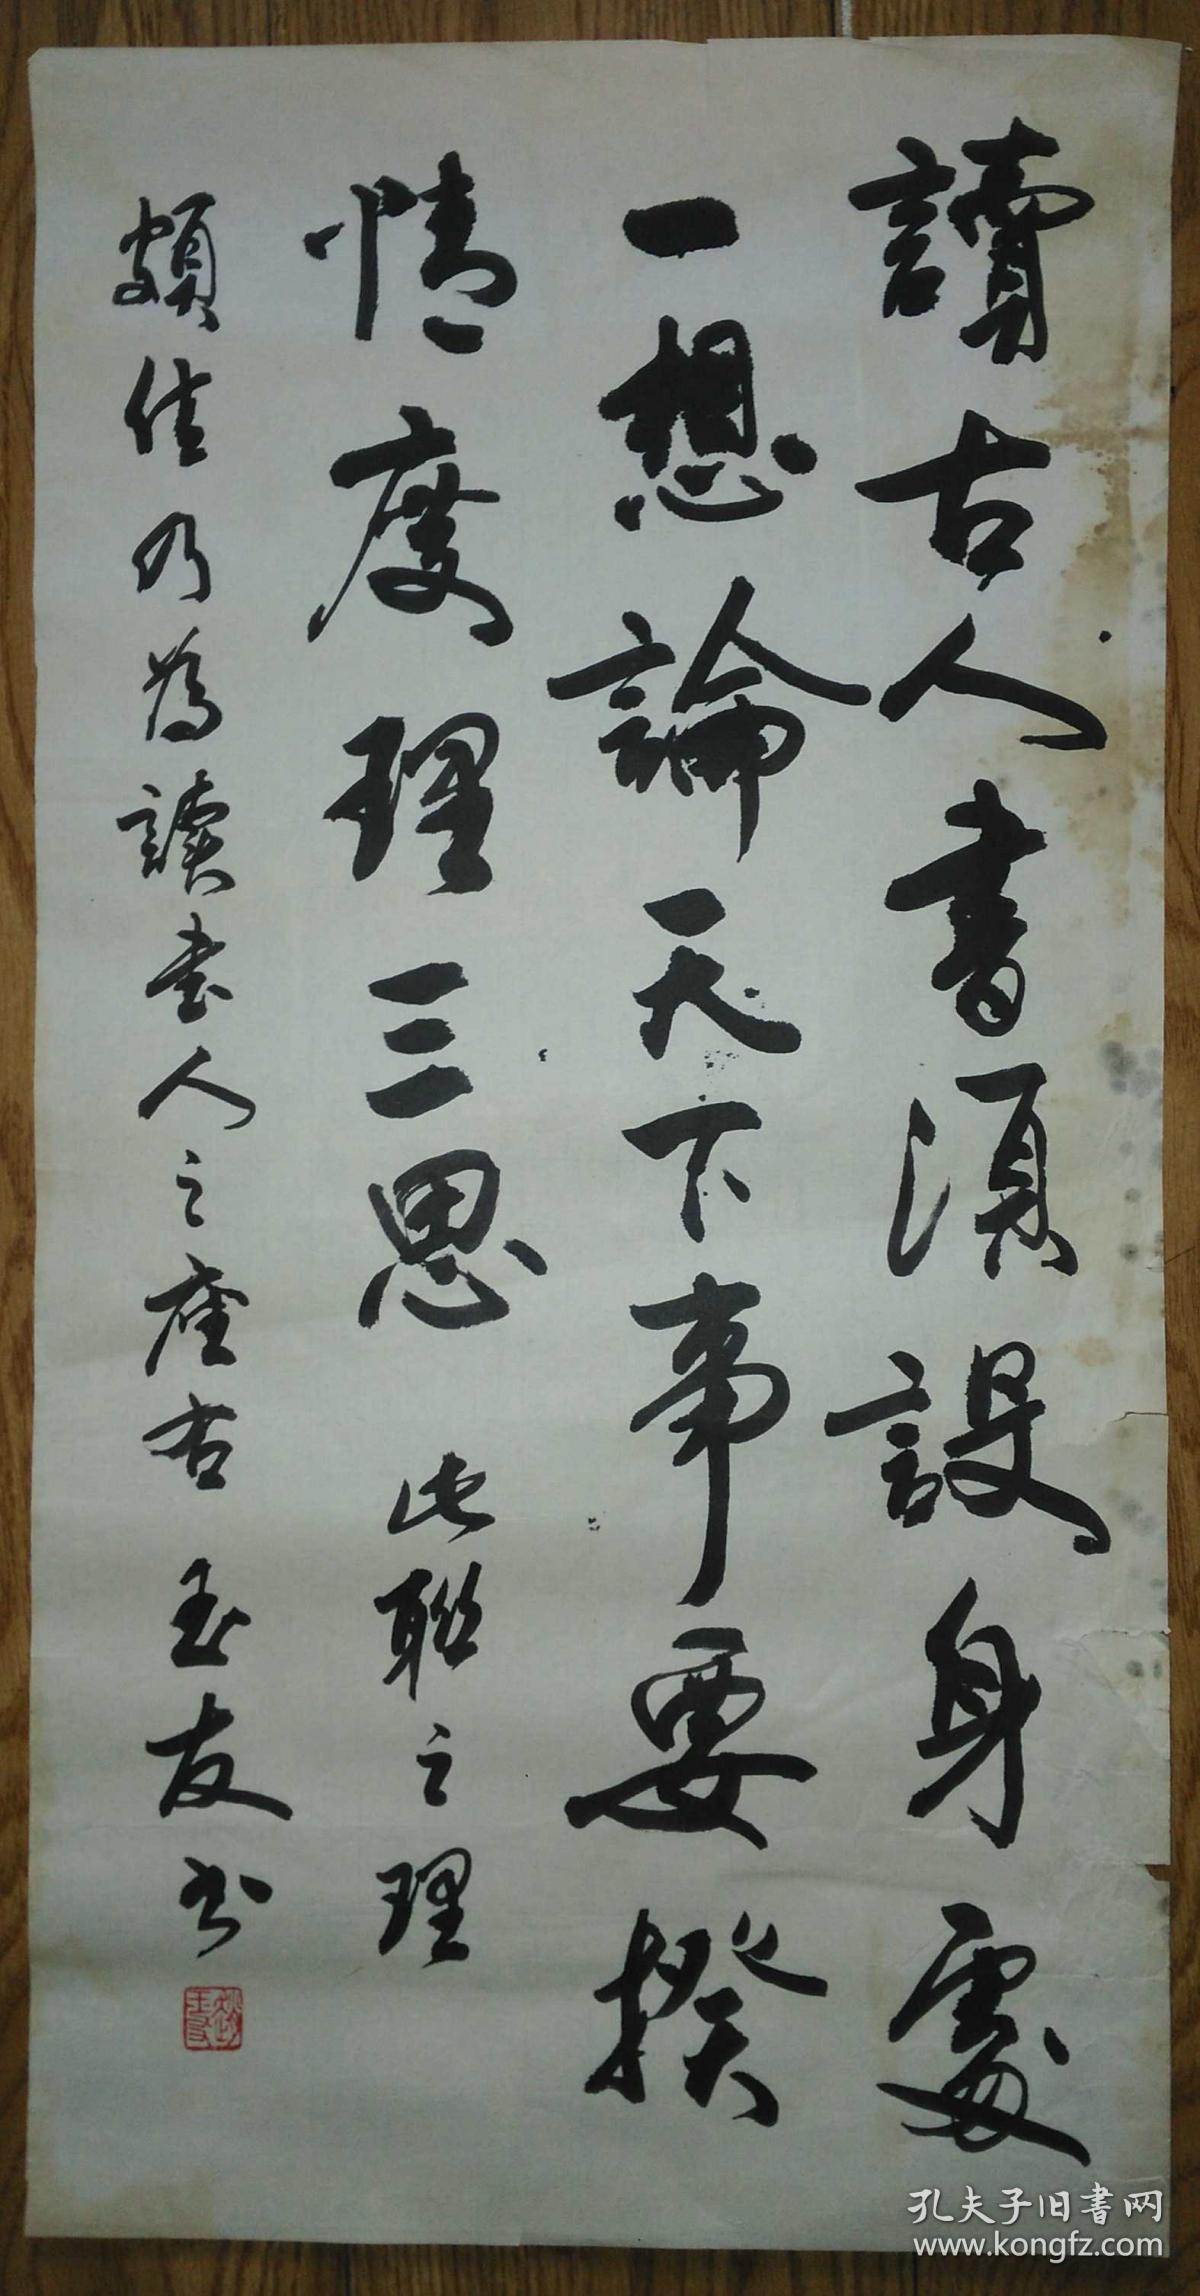 讀古人書須設身處
一想論天下事要揆
情度理三思 此聯之理
頗佳乃為讀書人之座右 玉友书
孔夫子旧书网
www.kongfz.com